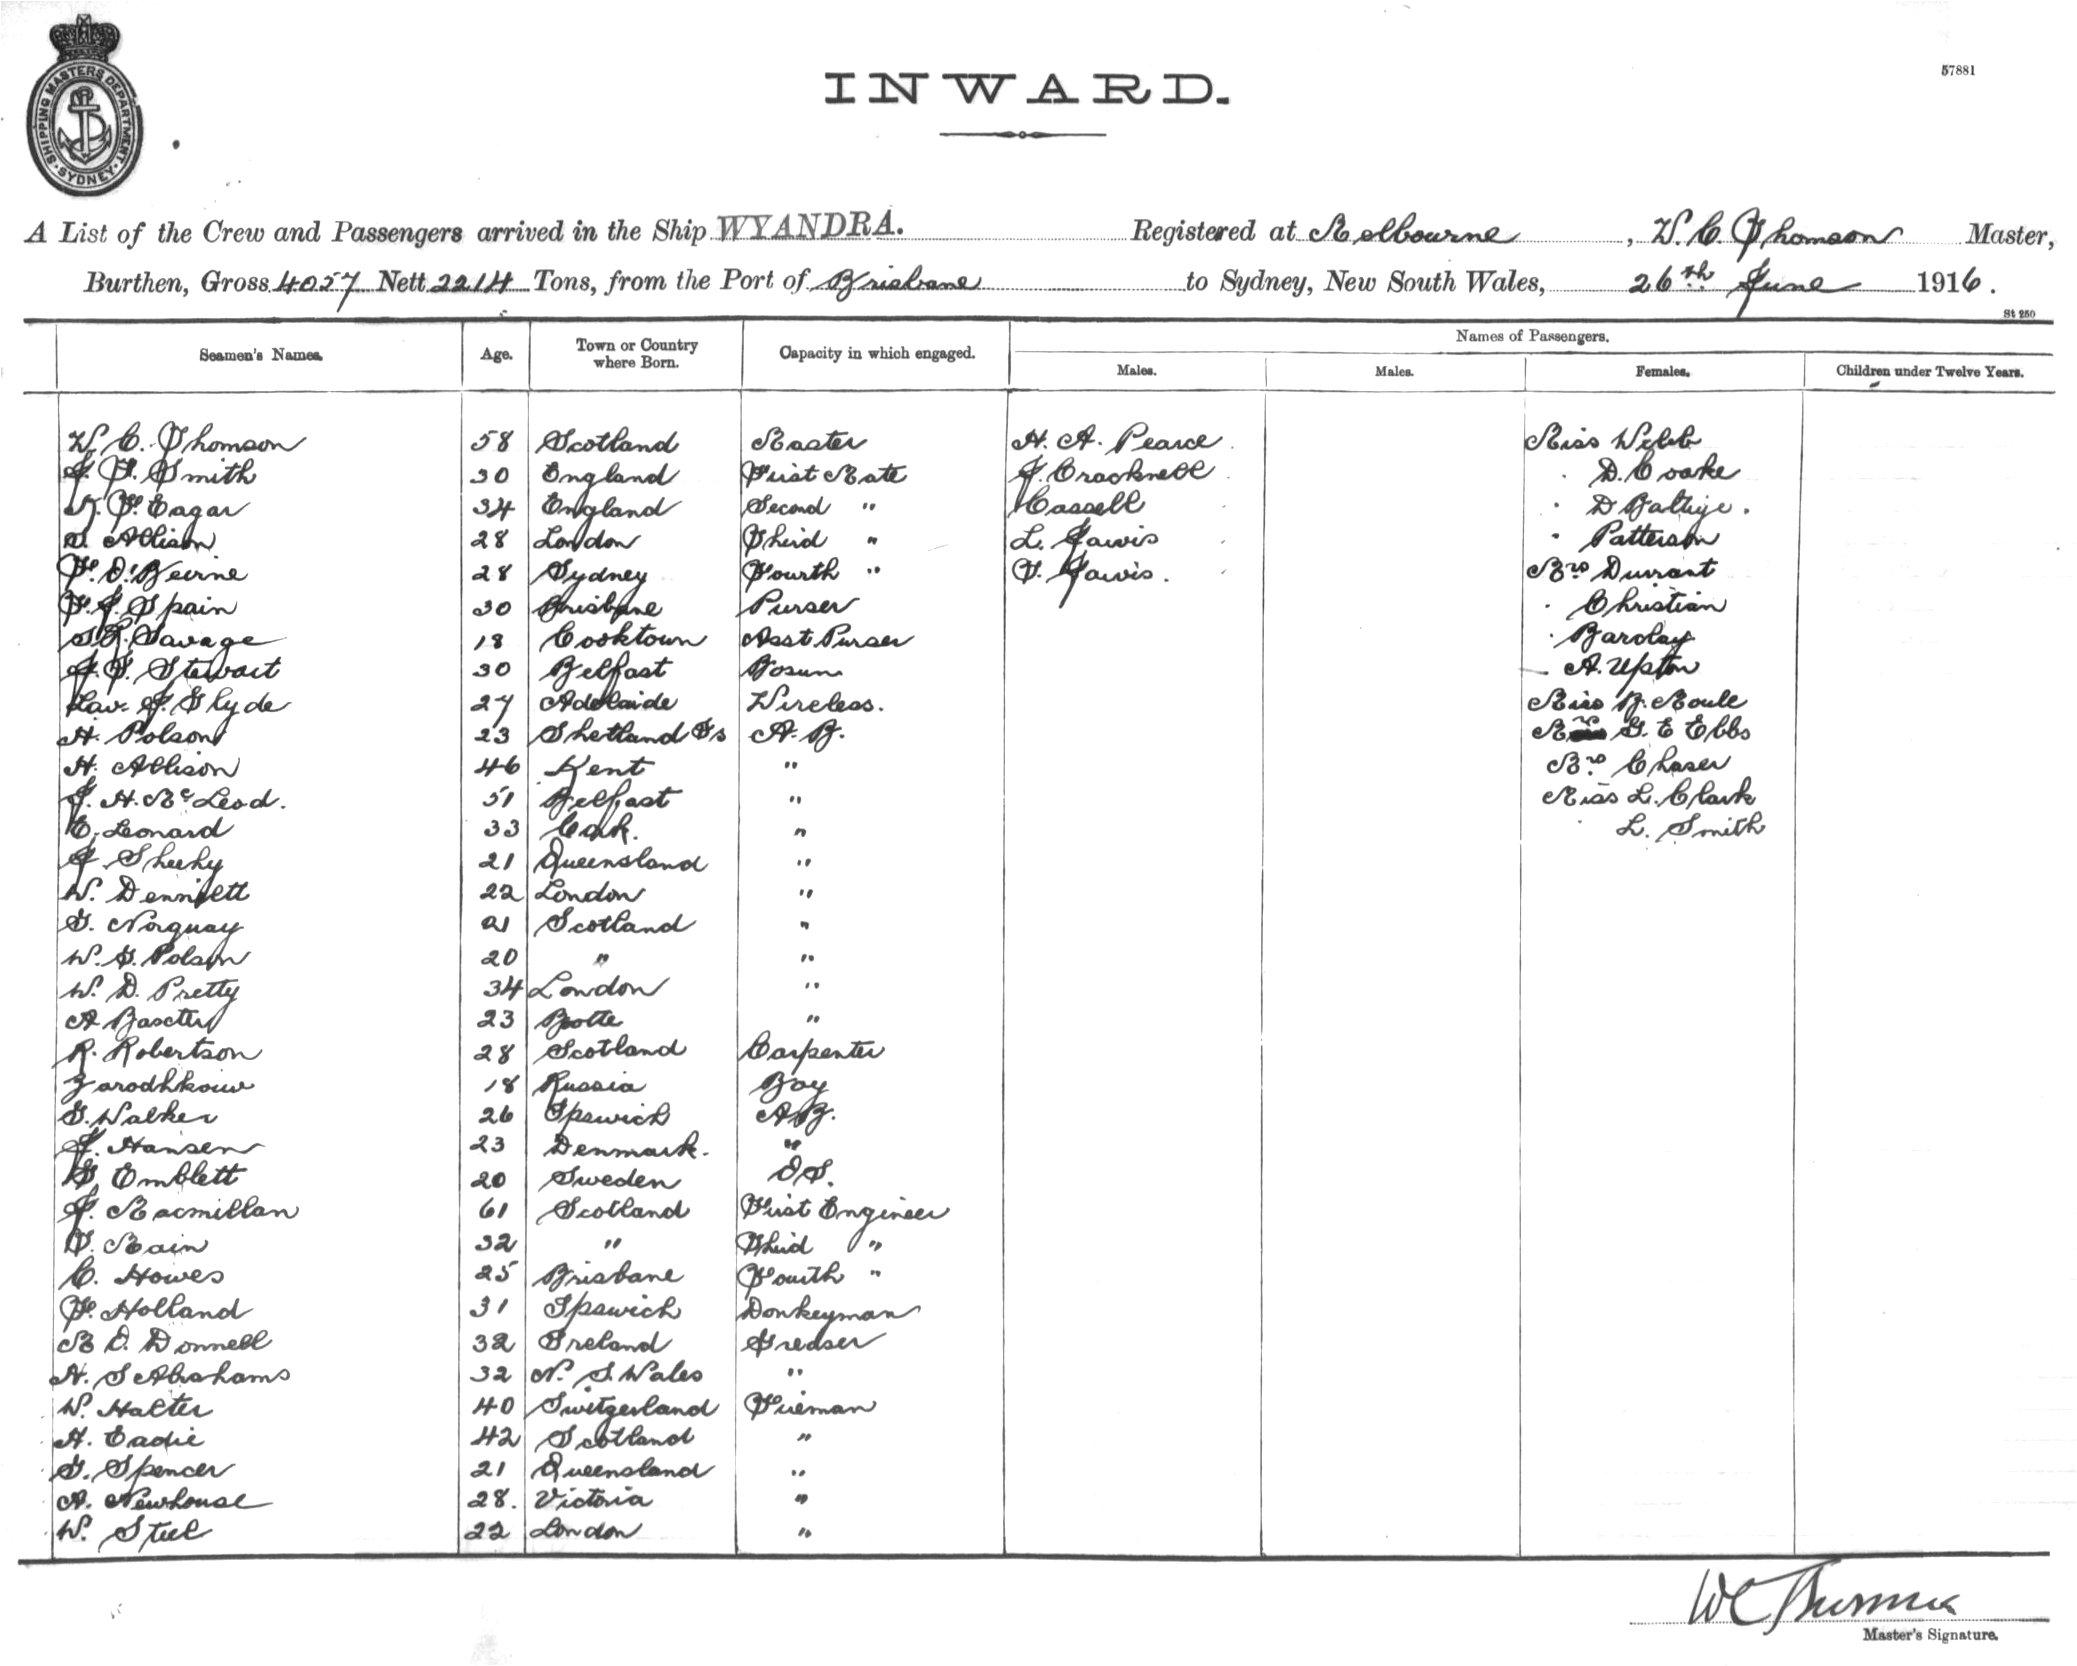 SHIPPING MASTERS DEPARTMENT
SYDNEY
57881
INWARD.
A List of the Crew and Passengers arrived in the Ship WYANDRA. Registered at Melbourne, W. C. Thomson Master,
Burthen, Gross 4057 Nett 2214 Tons, from the Port of Brisbane to Sydney, New South Wales, 26th June 1916.
St 250
Seamen's Names. Age. Town or Country where Born. Capacity in which engaged. Names of Passengers.
Males. Males. Females. Children under Twelve Years.
W. C. Thomson 58 Scotland Master H. A. Pearce Miss Webb
J. T. Smith 30 England First Mate J. Cracknell " D. Coake
F. Eagar 34 England Second " Cassell " D
Allison 28 London Third " L. Jarvis " Patterson
F. O'Beirne 28 Sydney Fourth " T. Jarvis. Mrs Durrant
F. J. Spain 30 Brisbane Purser " Christian
Savage 18 Cooktown Asst Purser " Barclay
J. T. Stewart 30 Belfast Bosun A. Upton
J. Slyde 27 Adelaide Wireless. Miss B. Moule
H. Polson 23 Shetland Is A. B. G. E Ebbs
H. Allison 46 Kent " Mrs Chaser
J. H. McLeod. 51 Belfast " Miss L. Clark
E. Leonard 33 Cork. " " L. Smith
J Sheehy 21 Queensland "
W. Dennett 22 London "
G. Norquay 21 Scotland "
W. G. Polson 20 " "
W. D. Pretty 34 London "
A Baxter 23 "
R. Robertson 28 Scotland Carpenter
18 Russia Boy
G. Walker 26 Ipswich A B.
J. Hansen 23 Denmark. "
G. Emblett 20 Sweden O S.
J. Macmillan 61 Scotland First Engineer
T. Main 32 " Third "
C. Howes 25 Brisbane Fourth "
F. Holland 31 Ipswich Donkeyman
M O. Donnell 32 Ireland Greaser
H. S Abrahams 32 N. S. Wales "
W. Halter 40 Switzerland Fireman
A. Eadie 42 Scotland "
G. Spencer 21 Queensland "
A. Newhouse 28. Victoria "
W. Steel 22 London "
Master's Signature.